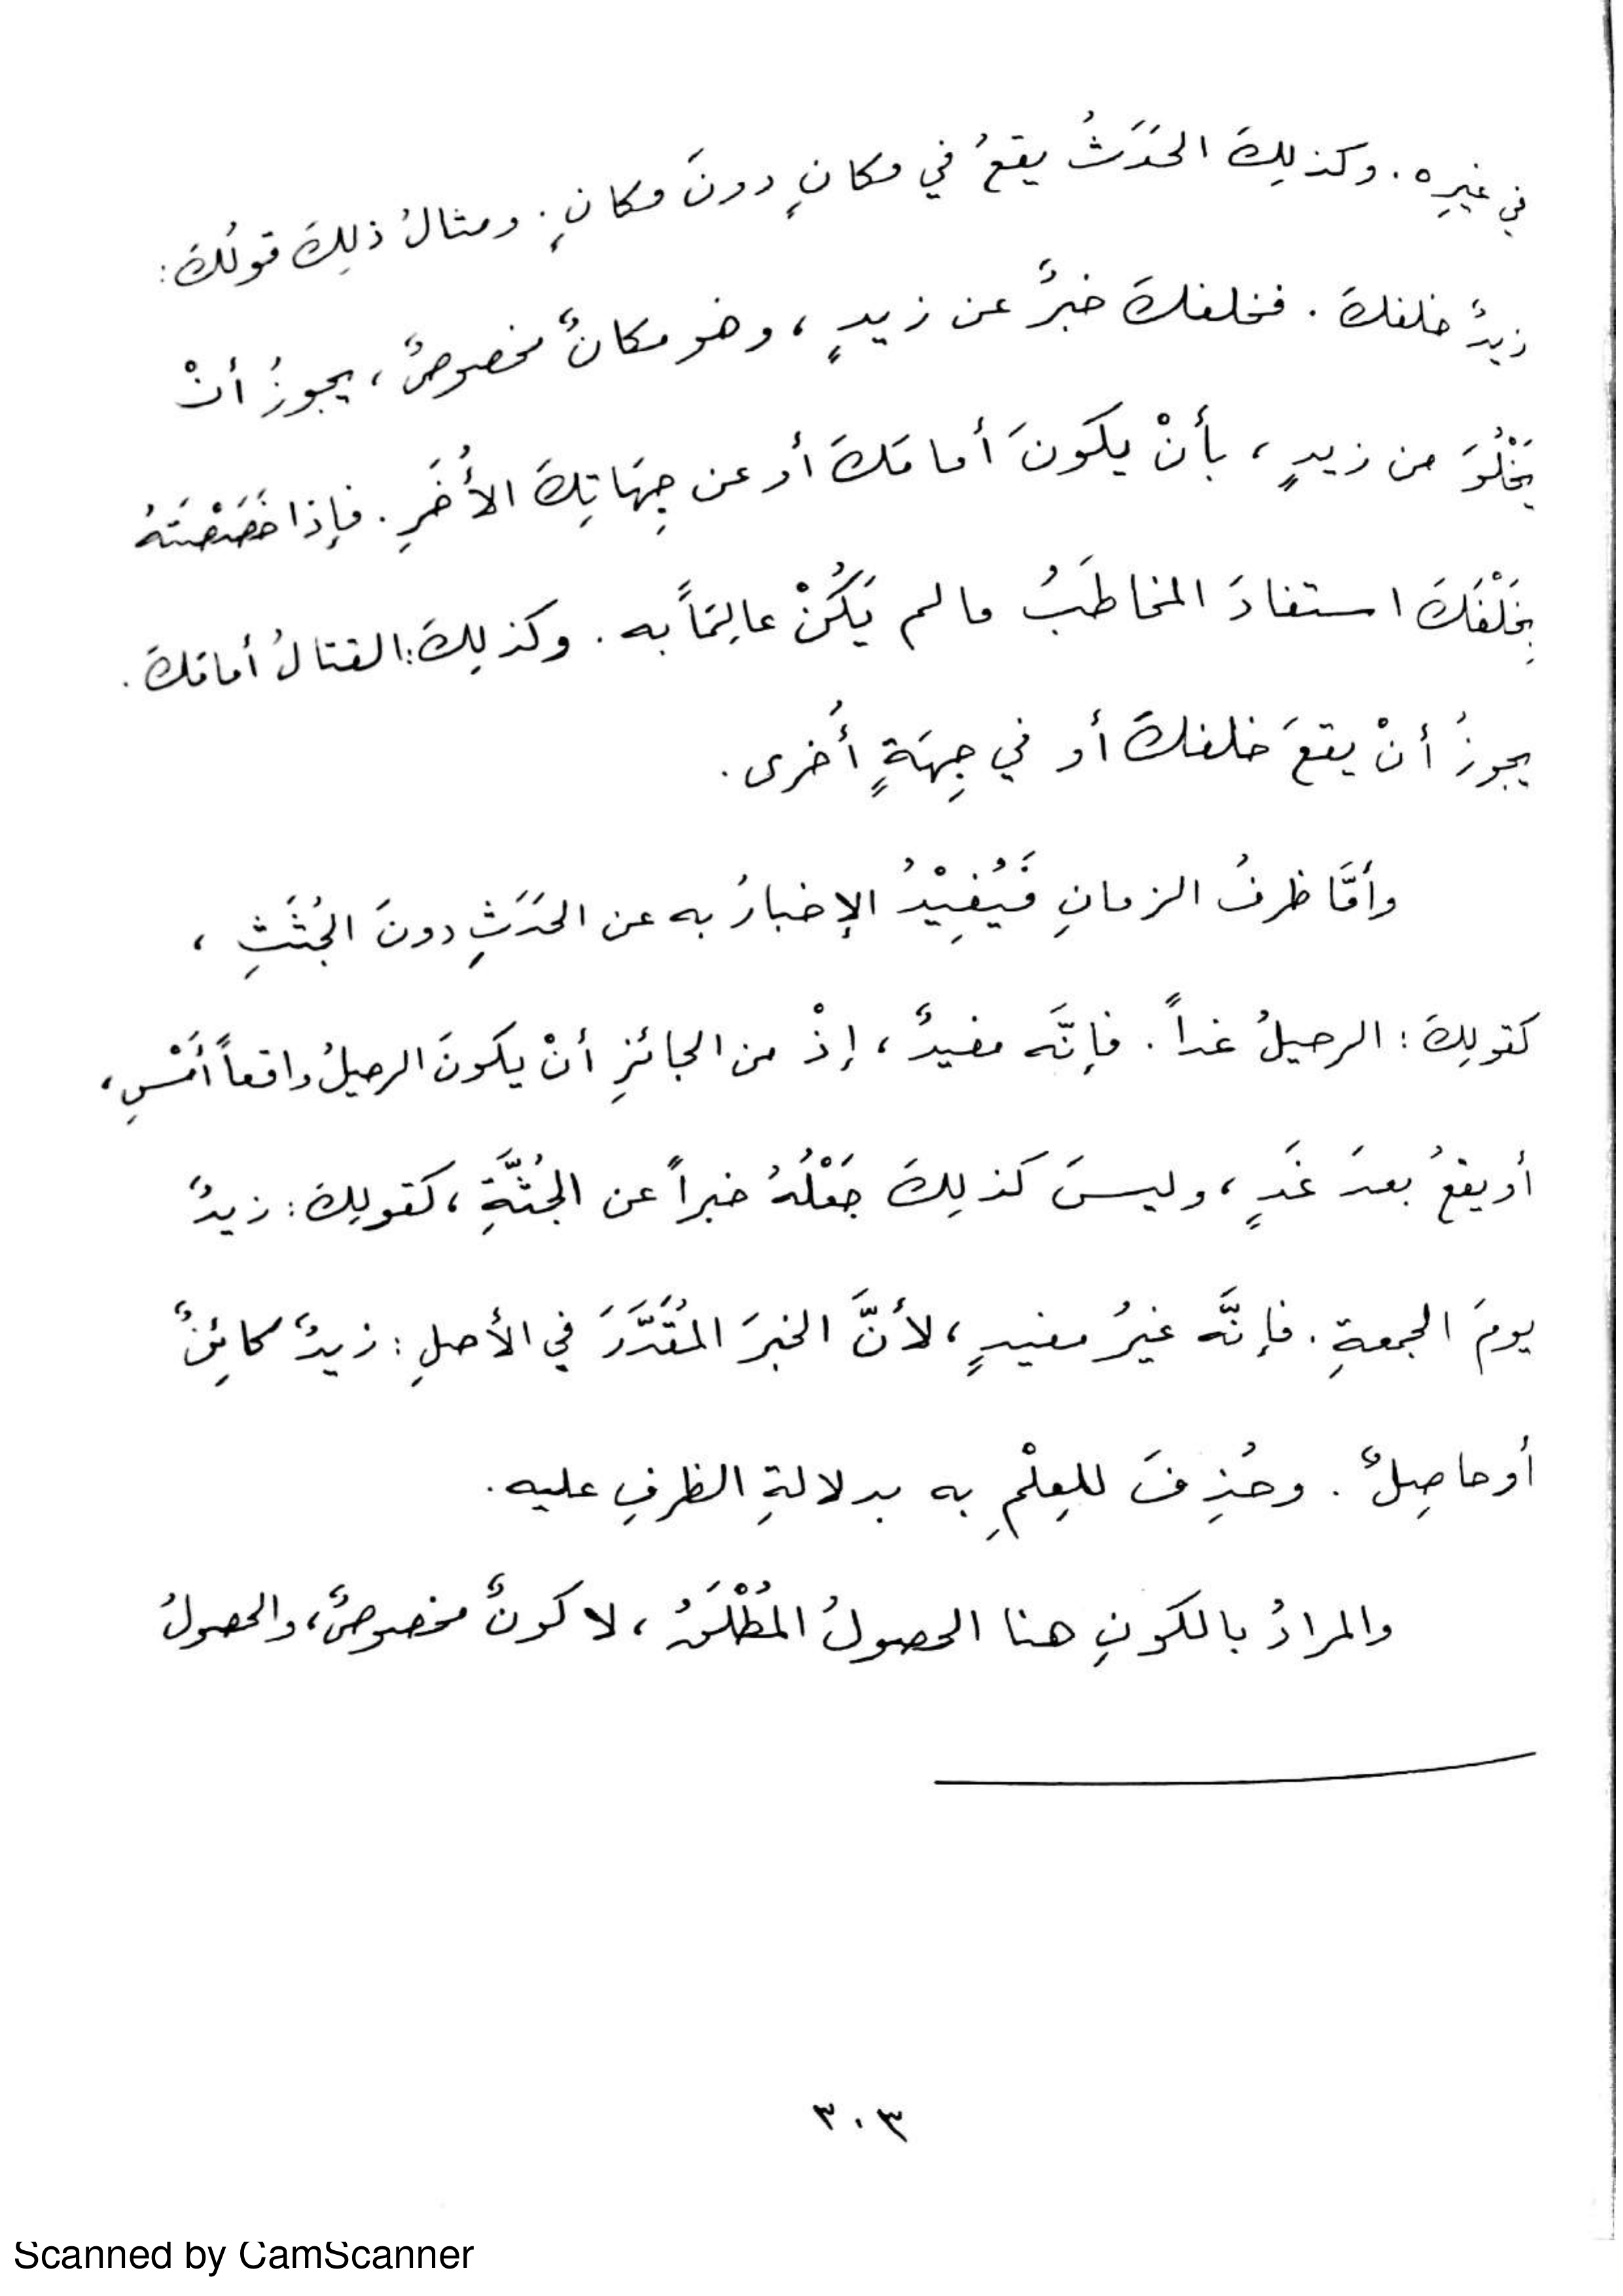 في غيرِه . وكذلِكَ الحَدَثُ يقعُ في مكانٍ دونَ مكانٍ . ومثالُ ذلِكَ قولُكَ :
زيدٌ خلفكَ . فخلفكَ خبرٌ عن زيدٍ ، وهو مكانٌ مخصوصٌ ، يجوزُ أنْ
يَخْلُوَ من زيدٍ ، بأنْ يكونَ أمامَكَ أو عن جِهَاتِكَ الأُخَرِ . فإذا خَصَصْتَهُ
بِخَلْفَكَ استفادَ المخاطَبُ مالم يَكُنْ عالِمَاً به . وكذلِكَ : القتالُ أمامَكَ .
يجوزُ أنْ يقعَ خلفكَ أو في جِهَةٍ أُخرى .
وأمَّا ظرفُ الزمانِ فَيُفِيْدُ الإخبارُ به عن الحَدَثِ دونَ الجُثَثِ ،
كقولِكَ : الرحيلُ غداً . فإنَّه مفيدٌ ، إذْ من الجائزِ أنْ يكونَ الرحيلُ واقعاً أَمْسِ ،
أو يقعُ بعدَ غَدٍ ، وليسَ كذلِكَ جَعْلُهُ خبراً عن الجُثَّةِ ، كقولِكَ : زيدٌ
يومَ الجمعةِ . فإنَّه غيرُ مفيدٍ ، لأنَّ الخبرَ المُقَدَّرَ في الأصلِ : زيدٌ كائِنٌ
أو حاصِلٌ . وحُذِفَ للعِلْمِ به بدلالةِ الظرفِ عليه .
والمرادُ بالكونِ هنا الحصولُ المُطْلَقُ ، لا كونٌ مخصوصٌ ، والحصولُ
٣٠٣
Scanned by CamScanner